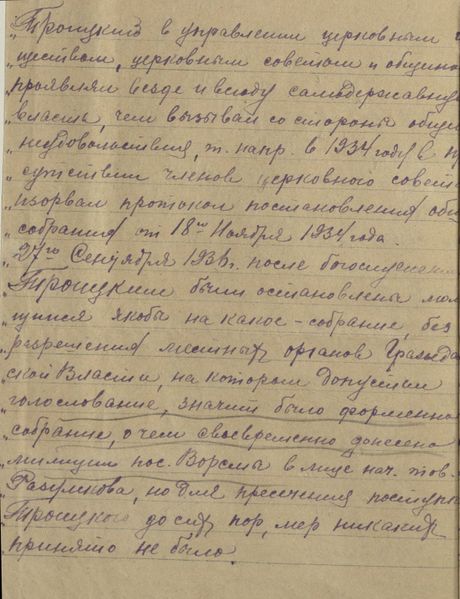 „Троицкий в управлении церковным и
„ществом, церковным советом и общино
„проявлял везде и всюду самодержавную
„власть, чем вызывал со стороны общи
„неудовольствия, т. напр. в 1934 году в пр
„сутствии членов церковного совета
„изорвал протокол постановления общ
„собрания от 18го Ноября 1934 года.
„27го Сентября 1936г. после богослужения
„Троицким были остановлены моля
„щиеся якобы на какое-собрание, без
„разрешения местных органов Граждан
„ской Власти, на котором допустил
„голосование, значит было форменное
„собрание, о чем своевременно донесено
„милиции пос. Ворсма в лице нач. тов.
„но для пресечения поступк
„Троицкого до сих пор, мер никаких
„принято не было.